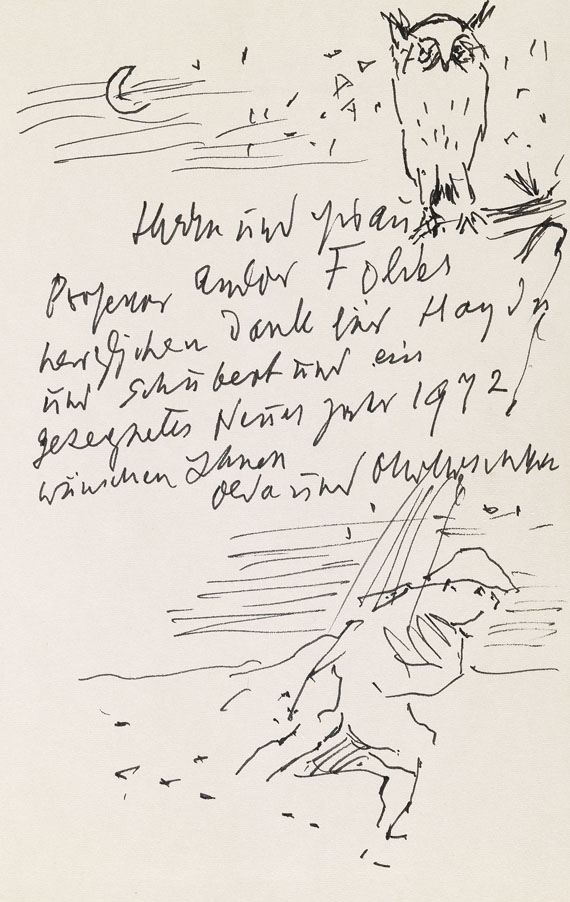 Herrn und Frau
Professor Andor Foldes
herzlichen Dank für Haydn
und Schubert und ein
gesegnetes Neues Jahr 1972
wünschen Ihnen
Olda und OKokoschka